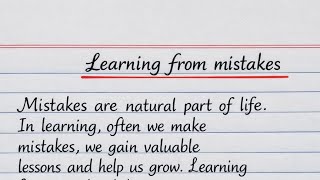 Learning from mistakes
Mistakes are natural part of life.
In learning, often we make
mistakes, we gain valuable
lessons and help us grow. Learning